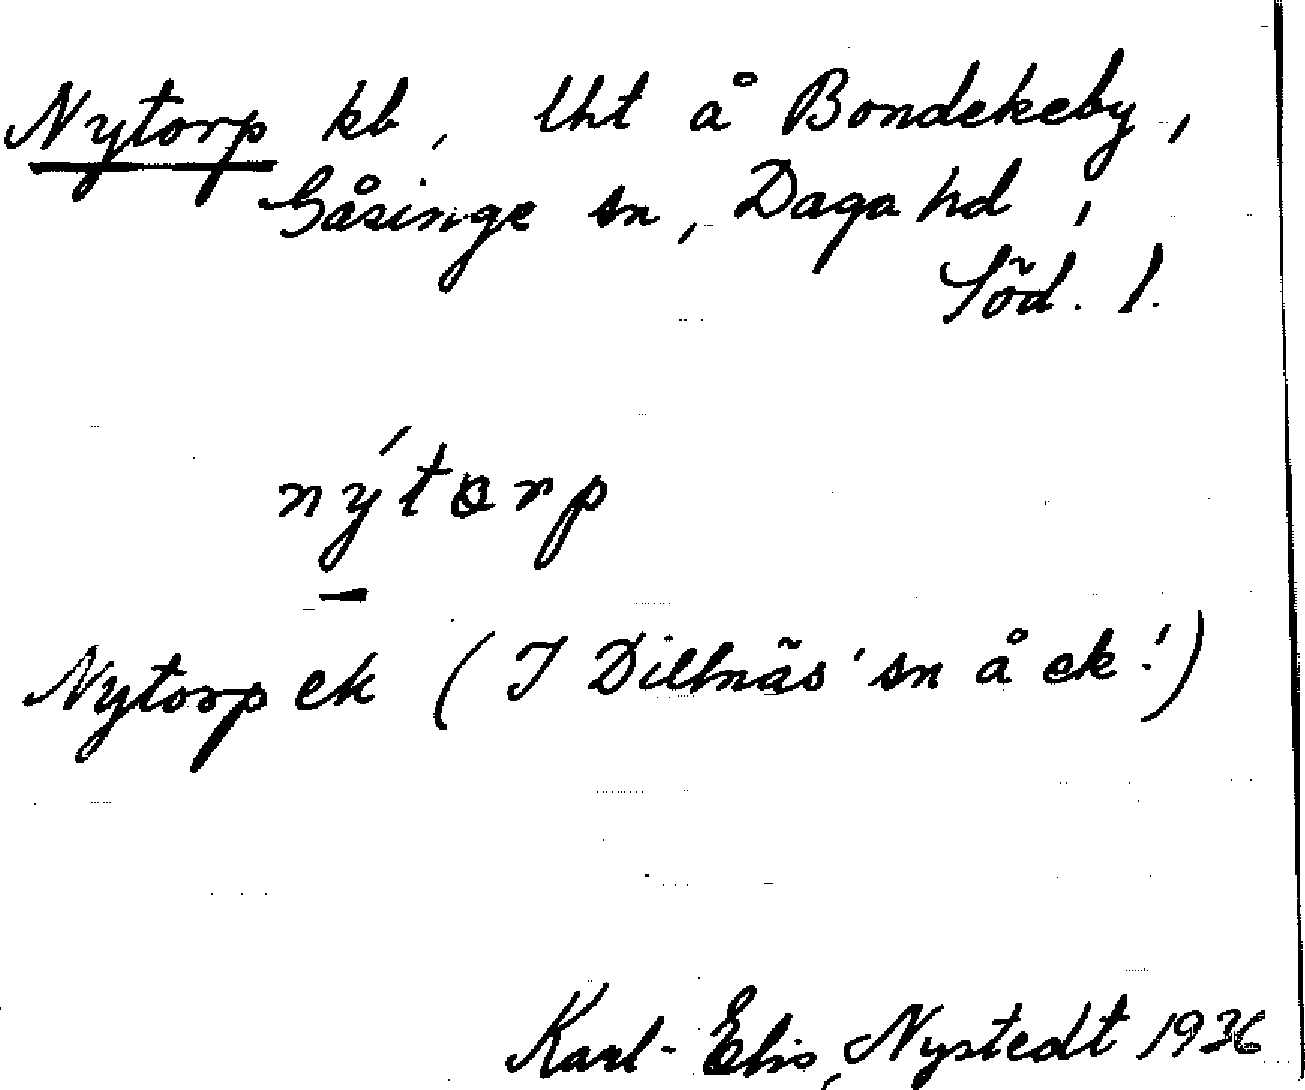 Nytorp kb, lht å Bondekeby,
Gåsinge sn, Daga hd,
Söd. l.
nýtorp
Nytorp ek (I Dillnäs' sn å ek!)
Karl-Elis, Nystedt 1936